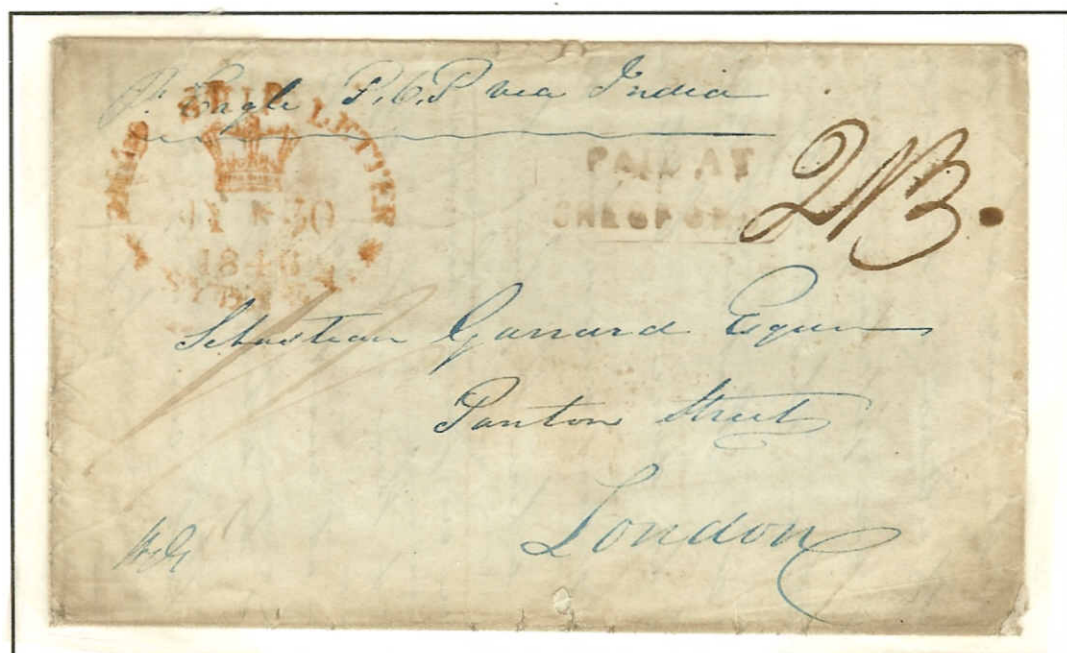 Pr Eagle P.C.P via India
PAID SHIP LETTER
30
1846
SYDNEY
PAID AT
2/3
Sebastian Garrard Esqre
Panton Street
London